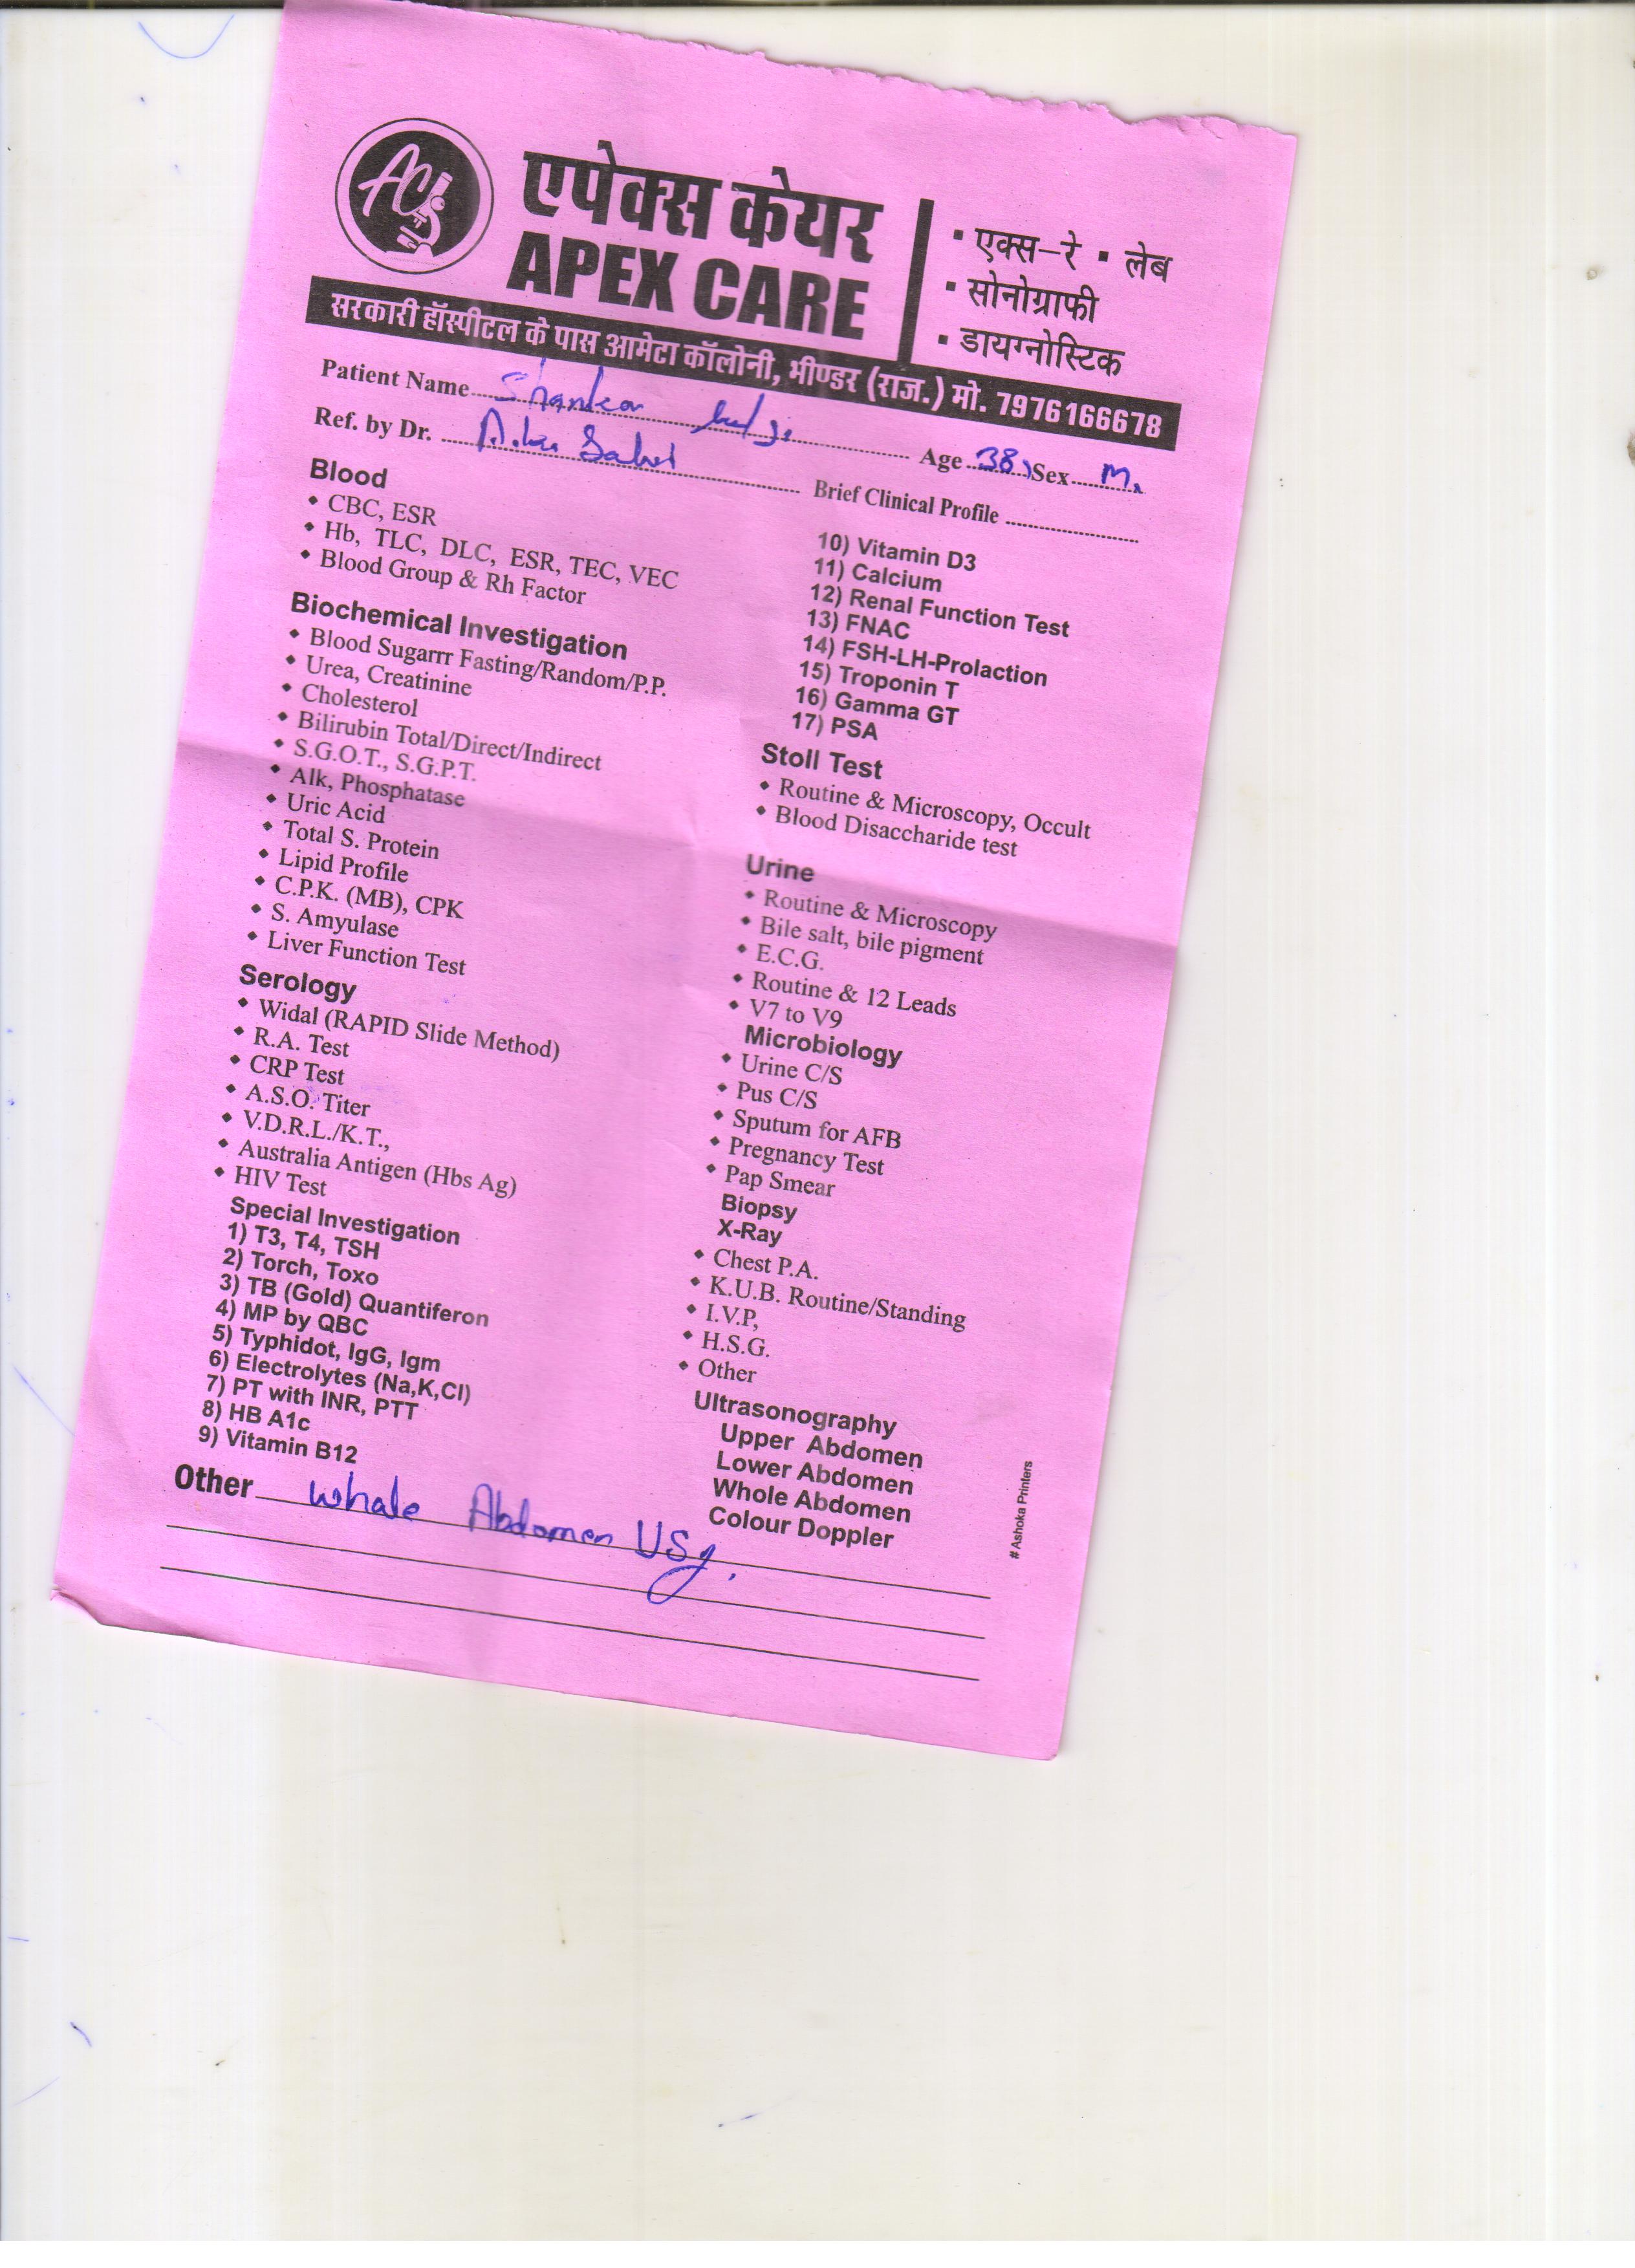 AC
एपेक्स केयर
APEX CARE
▪ एक्स-रे ▪ लेब
▪ सोनोग्राफी
▪ डायग्नोस्टिक
सरकारी हॉस्पीटल के पास आमेटा कॉलोनी, भीण्डर (राज.) मो. 7976166678
Patient Name Shankar
Age 38 Sex M.
Ref. by Dr.
Brief Clinical Profile
Blood
• CBC, ESR
• Hb, TLC, DLC, ESR, TEC, VEC
• Blood Group & Rh Factor
Biochemical Investigation
• Blood Sugarrr Fasting/Random/P.P.
• Urea, Creatinine
• Cholesterol
• Bilirubin Total/Direct/Indirect
• S.G.O.T., S.G.P.T.
• Alk, Phosphatase
• Uric Acid
• Total S. Protein
• Lipid Profile
• C.P.K. (MB), CPK
• S. Amyulase
• Liver Function Test
Serology
• Widal (RAPID Slide Method)
• R.A. Test
• CRP Test
• A.S.O. Titer
• V.D.R.L./K.T.,
• Australia Antigen (Hbs Ag)
• HIV Test
Special Investigation
1) T3, T4, TSH
2) Torch, Toxo
3) TB (Gold) Quantiferon
4) MP by QBC
5) Typhidot, IgG, Igm
6) Electrolytes (Na,K,Cl)
7) PT with INR, PTT
8) HB A1c
9) Vitamin B12
10) Vitamin D3
11) Calcium
12) Renal Function Test
13) FNAC
14) FSH-LH-Prolaction
15) Troponin T
16) Gamma GT
17) PSA
Stoll Test
• Routine & Microscopy, Occult
• Blood Disaccharide test
Urine
• Routine & Microscopy
• Bile salt, bile pigment
• E.C.G.
• Routine & 12 Leads
• V7 to V9
Microbiology
• Urine C/S
• Pus C/S
• Sputum for AFB
• Pregnancy Test
• Pap Smear
Biopsy
X-Ray
• Chest P.A.
• K.U.B. Routine/Standing
• I.V.P,
• H.S.G.
• Other
Ultrasonography
Upper Abdomen
Lower Abdomen
Whole Abdomen
Colour Doppler
Other Whole Abdomen USg.
# Ashoka Printers